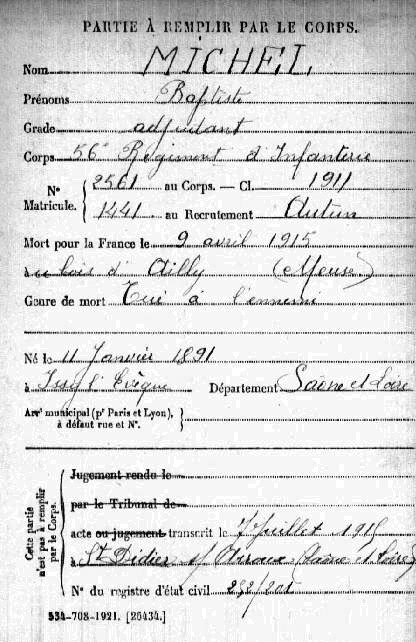 PARTIE À REMPLIR PAR LE CORPS.
Nom MICHEL
Prénoms Baptiste
Grade adjudant
Corps 56e Régiment d'Infanterie
N° Matricule. { 2561 au Corps. — Cl. 1911
1441 au Recrutement Autun
Mort pour la France le 9 avril 1915
à au bois d'Ailly (Meuse)
Genre de mort Tué à l'ennemi
Né le 11 Janvier 1891
à Issy l'Evêque Département Saône et Loire
Arrt municipal (pr Paris et Lyon), à défaut rue et N°. }
Cette partie n'est pas à remplir par le Corps.
Jugement rendu le
par le Tribunal de
acte ou jugement transcrit le 7 Juillet 1915
à St Didier s/ Arroux (Saône et Loire)
N° du registre d'état civil 232/205
534-708-1921. [26434.]